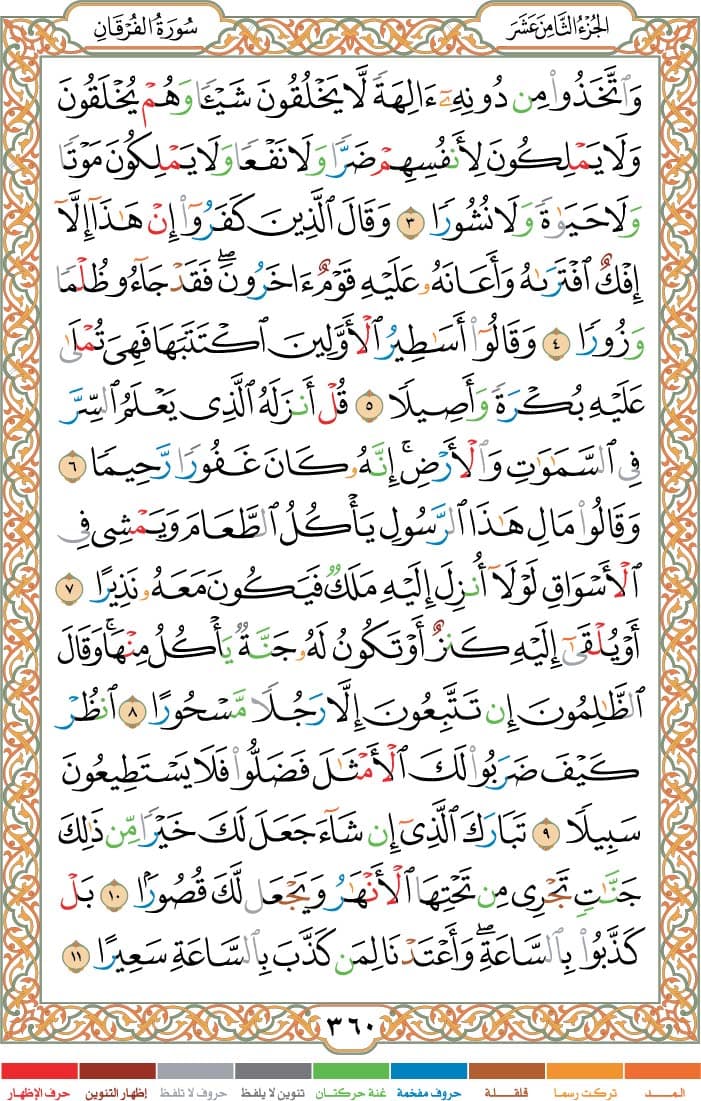 الجزء الثامن عشر
سورة الفرقان
وَٱتَّخَذُوا۟ مِن دُونِهِۦٓ ءَالِهَةً لَّا يَخْلُقُونَ شَيْـًٔا وَهُمْ يُخْلَقُونَ
وَلَا يَمْلِكُونَ لِأَنفُسِهِمْ ضَرًّا وَلَا نَفْعًا وَلَا يَمْلِكُونَ مَوْتًا
وَلَا حَيَوٰةً وَلَا نُشُورًا ٣ وَقَالَ ٱلَّذِينَ كَفَرُوٓا۟ إِنْ هَٰذَآ إِلَّآ
إِفْكٌ ٱفْتَرَىٰهُ وَأَعَانَهُۥ عَلَيْهِ قَوْمٌ ءَاخَرُونَ ۖ فَقَدْ جَآءُو ظُلْمًا
وَزُورًا ٤ وَقَالُوٓا۟ أَسَٰطِيرُ ٱلْأَوَّلِينَ ٱكْتَتَبَهَا فَهِىَ تُمْلَىٰ
عَلَيْهِ بُكْرَةً وَأَصِيلًا ٥ قُلْ أَنزَلَهُ ٱلَّذِى يَعْلَمُ ٱلسِّرَّ
فِى ٱلسَّمَٰوَٰتِ وَٱلْأَرْضِ ۚ إِنَّهُۥ كَانَ غَفُورًا رَّحِيمًا ٦
وَقَالُوا۟ مَالِ هَٰذَا ٱلرَّسُولِ يَأْكُلُ ٱلطَّعَامَ وَيَمْشِى فِى
ٱلْأَسْوَاقِ لَوْلَآ أُنزِلَ إِلَيْهِ مَلَكٌ فَيَكُونَ مَعَهُۥ نَذِيرًا ٧
أَوْ يُلْقَىٰٓ إِلَيْهِ كَنزٌ أَوْ تَكُونُ لَهُۥ جَنَّةٌ يَأْكُلُ مِنْهَا ۚ وَقَالَ
ٱلظَّٰلِمُونَ إِن تَتَّبِعُونَ إِلَّا رَجُلًا مَّسْحُورًا ٨ ٱنظُرْ
كَيْفَ ضَرَبُوا۟ لَكَ ٱلْأَمْثَٰلَ فَضَلُّوا۟ فَلَا يَسْتَطِيعُونَ
سَبِيلًا ٩ تَبَارَكَ ٱلَّذِىٓ إِن شَآءَ جَعَلَ لَكَ خَيْرًا مِّن ذَٰلِكَ
جَنَّٰتٍ تَجْرِى مِن تَحْتِهَا ٱلْأَنْهَٰرُ وَيَجْعَل لَّكَ قُصُورًۢا ١٠ بَلْ
كَذَّبُوا۟ بِٱلسَّاعَةِ ۖ وَأَعْتَدْنَا لِمَن كَذَّبَ بِٱلسَّاعَةِ سَعِيرًا ١١
٣٦٠
المـــد تركت رسما قلقـــلة حروف مفخمة غنة حركتـان تنوين لا يلفظ حروف لا تلفظ إظهار التنوين حرف الإظهار